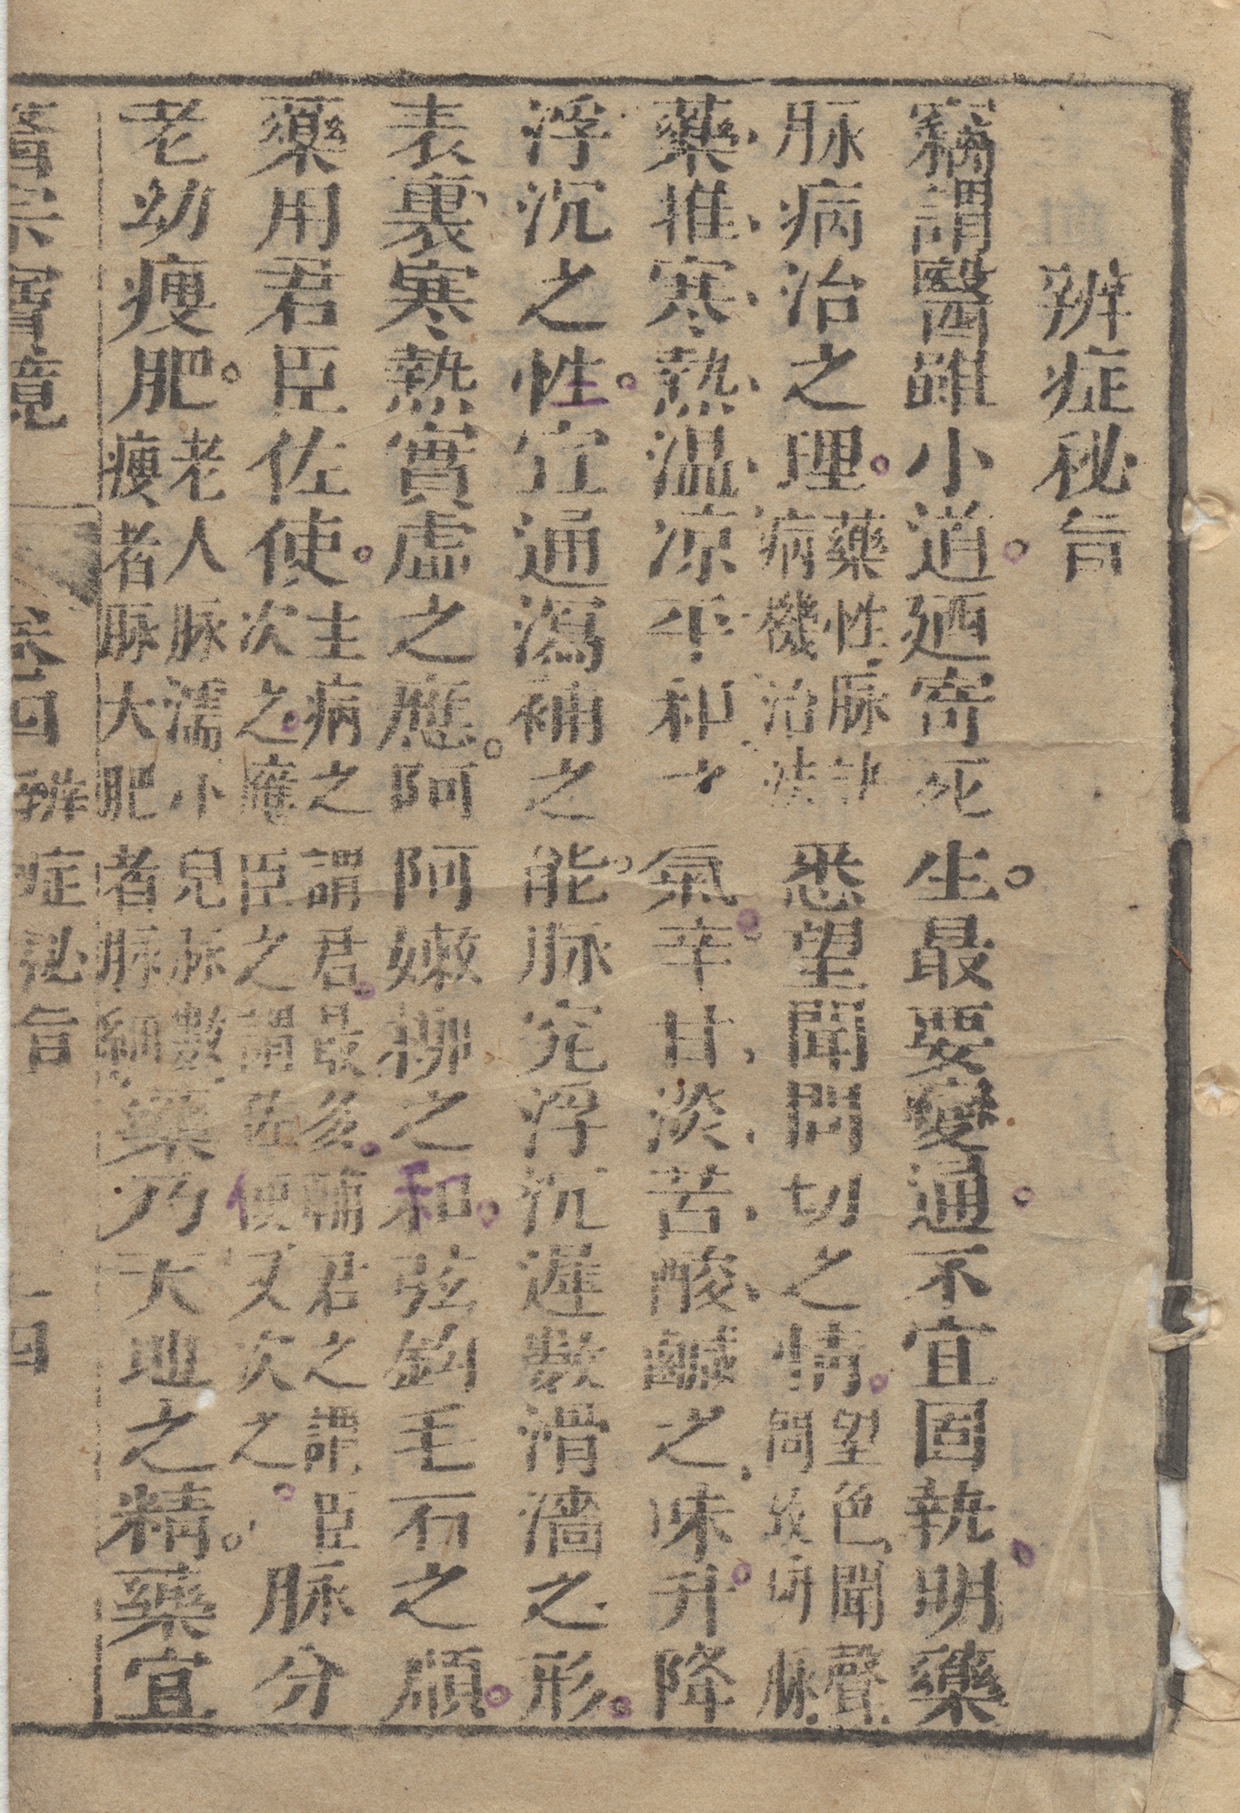 辨症秘旨
竊謂醫雖小道廼寄死生最要變通不宜固執明藥
脉病治之理藥性脉訣病機治法悉望聞問切之情望色聞聲問故切脉
藥推寒熱温凉平和之氣辛甘淡苦酸鹹之味升降
浮沉之性宜通瀉補之能脉究浮沉遲數滑濇之形
表裏寒熱實虛之應阿阿嫩柳之和弦鈎毛石之順
藥用君臣佐使主病之謂君最多輔君之謂臣次之應臣之謂佐使又次之脉分
老幼瘦肥老人脉濡小兒脉數瘦者脉大肥者脉細藥乃天地之精藥宜
醫宗寶鏡 卷四 辨症秘旨 一四